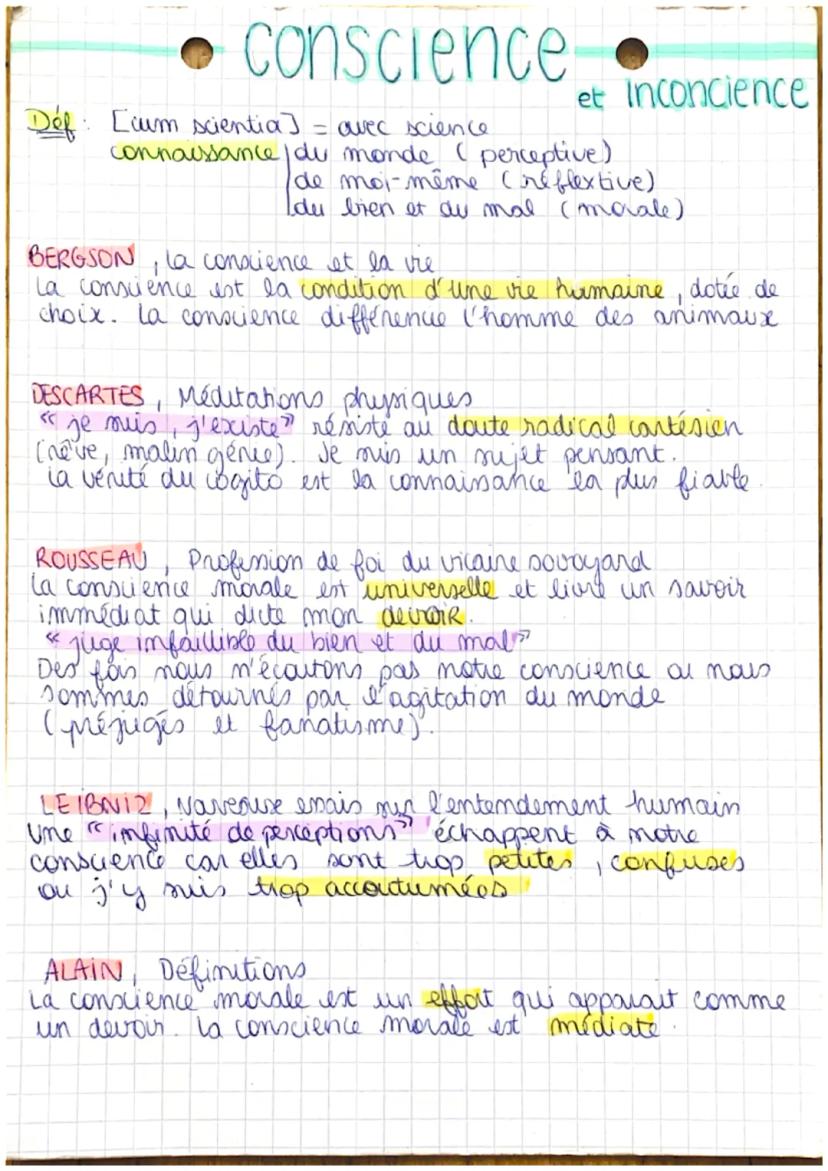 conscience
et inconcience
Déf : [cum scientia] = avec science
connaissance du monde (perceptive)
de moi-même (réflextive)
du bien et du mal (morale)
BERGSON, La conscience et la vie
La conscience est la condition d'une vie humaine, dotée de
choix. La conscience différencie l'homme des animaux
DESCARTES, Méditations physiques
"je suis, j'existe" résiste au doute radical cartésien
(rêve, malin génie). Je suis un sujet pensant.
La vérité du cogito est la connaissance la plus fiable.
ROUSSEAU, Profession de foi du vicaire savoyard
La conscience morale est universelle et livre un savoir
immédiat qui dicte mon devoir.
"juge infaillible du bien et du mal"
Des fois nous n'écoutons pas notre conscience ou nous
sommes détournés par l'agitation du monde
(préjugés et fanatisme).
LEIBNIZ, Naveoux essais sur l'entendement humain
Une "infinité de perceptions" échappent à notre
conscience car elles sont trop petites, confuses
ou j'y suis trop accoutumées
ALAIN, Définitions
La conscience morale est un effort qui apparait comme
un devoir. La conscience morale est médiate.